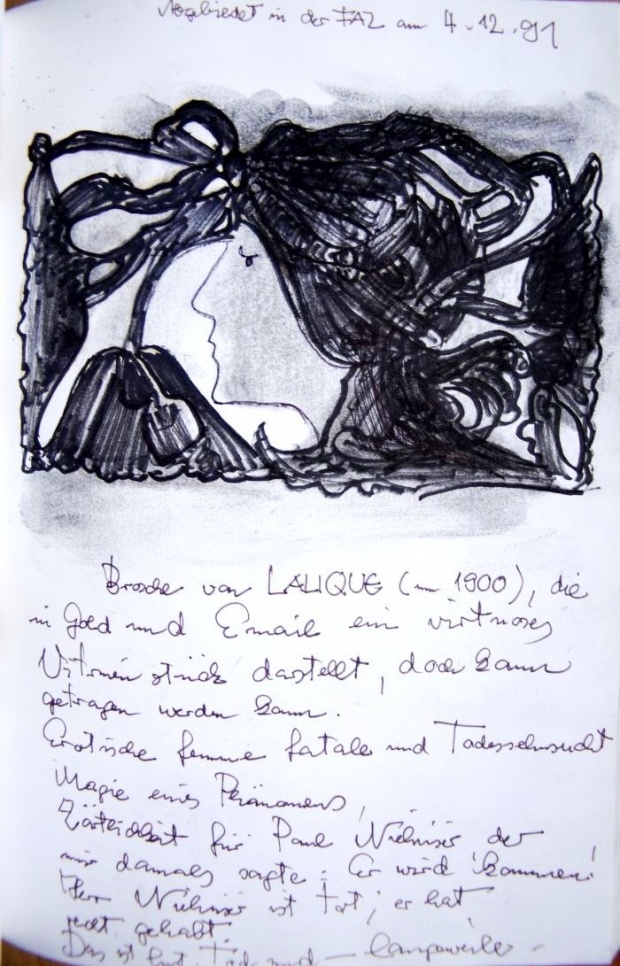 Abgebildet in der FAZ am 4.12.91
Brosche von LALIQUE (um 1900), die
in Gold und Email ein virtuoses
Vitrinenstück darstellt, doch kaum
getragen werden kann.
Erotische femme fatale und Todessehnsucht
Magie eines Phänomens,
Zärtlichkeit für Paul der
mir damals sagte: Er wird kommen!
Herr ist tot; er hat
recht gehabt.
Das ist Tod und